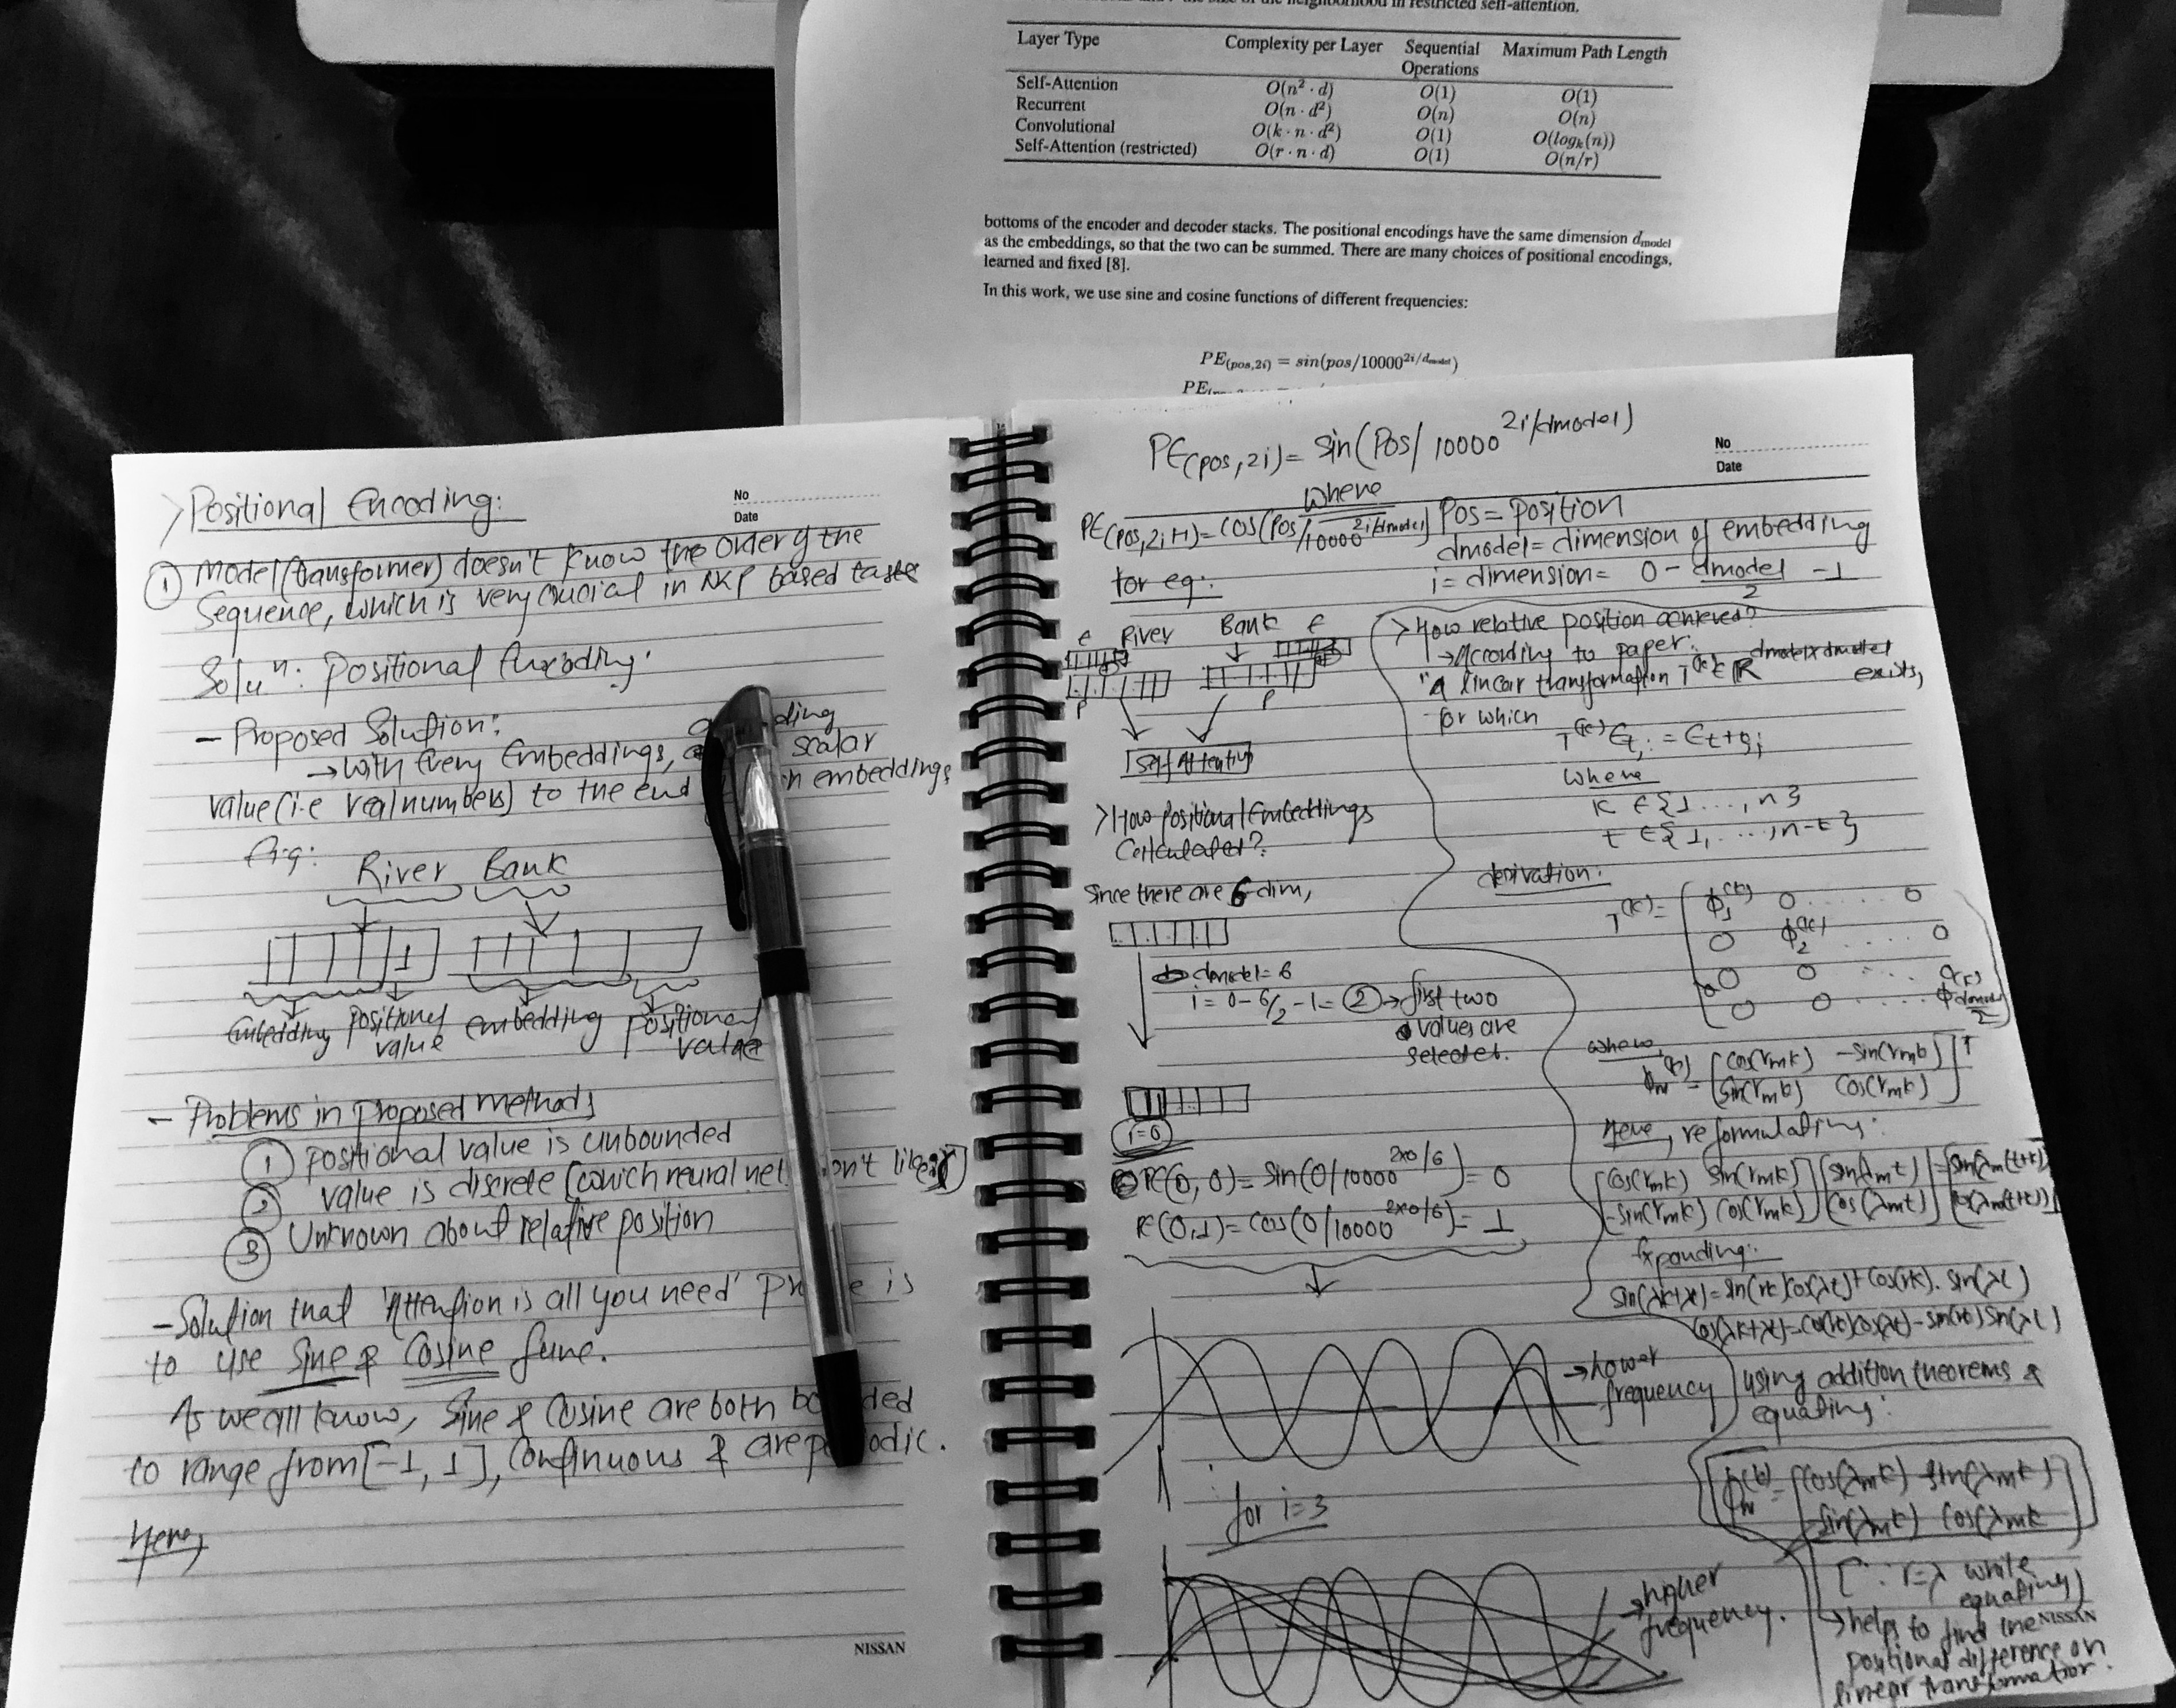 the size of the neighborhood in restricted self-attention.
Layer Type Complexity per Layer Sequential Operations Maximum Path Length
Self-Attention O(n² · d) O(1) O(1)
Recurrent O(n · d²) O(n) O(n)
Convolutional O(k · n · d²) O(1) O(logₖ(n))
Self-Attention (restricted) O(r · n · d) O(1) O(n/r)
bottoms of the encoder and decoder stacks. The positional encodings have the same dimension d_model
as the embeddings, so that the two can be summed. There are many choices of positional encodings,
learned and fixed [8].
In this work, we use sine and cosine functions of different frequencies:
PE(pos,2i) = sin(pos/10000^2i/d_model)
No
Date
> Positional Encoding:
① Model (transformer) doesn't know the order of the
Sequence, which is very crucial in NLP based tasks
Soluⁿ: Positional Encoding:
- Proposed Solution:
→ with Every Embeddings, scalar
value (i.e real numbers) to the end embeddings
Fig:
River Bank
1
Embedding positional value embedding positional value
- Problems in proposed methods
① positional value is unbounded
② value is discrete (which neural net n't like)
③ Unknown about relative position
- Solution that 'Attention is all you need' is
to use Sine & Cosine func.
As we all know, Sine & Cosine are both
to range from [-1, 1], Continuous & are
Here,
NISSAN
No
Date
PE(pos, 2i) = sin(Pos/10000^2i/dmodel)
Where
PE(pos, 2i+1) = cos(Pos/10000^2i/dmodel)
Pos = Position
dmodel = dimension of embedding
i = dimension = 0 - dmodel/2 - 1
for eg:
E River Bank E
P P
Self Attention
> How positional Embeddings
Calculated?
Since there are 6 dim,
dmodel = 6
i = 0 - 6/2 - 1 = ② → first two
values are
selected.
i=0
PE(0, 0) = sin(0/10000^2x0/6) = 0
PE(0,1) = cos(0/10000^2x0/6) = 1
→ Lower
frequency
for i=3
→ higher
frequency.
> How relative position achieved?
→ According to paper:
"A linear transformation T^(k) ∈ R^dmodel x dmodel exists,
for which
where
k ∈ {1 ..., n}
t ∈ {1, ..., n-t}
derivation:
where
Here, reformulating:
Expanding:
sin(λk+λt) = sin(rk)cos(λt) + cos(rk). sin(λt)
cos(λk+λt) = cos(rk)cos(λt) - sin(rk)sin(λt)
using addition theorems &
equating:
[∵ r=λ while
equating]
NISSAN
→ helps to find the
positional difference on
linear transformation.